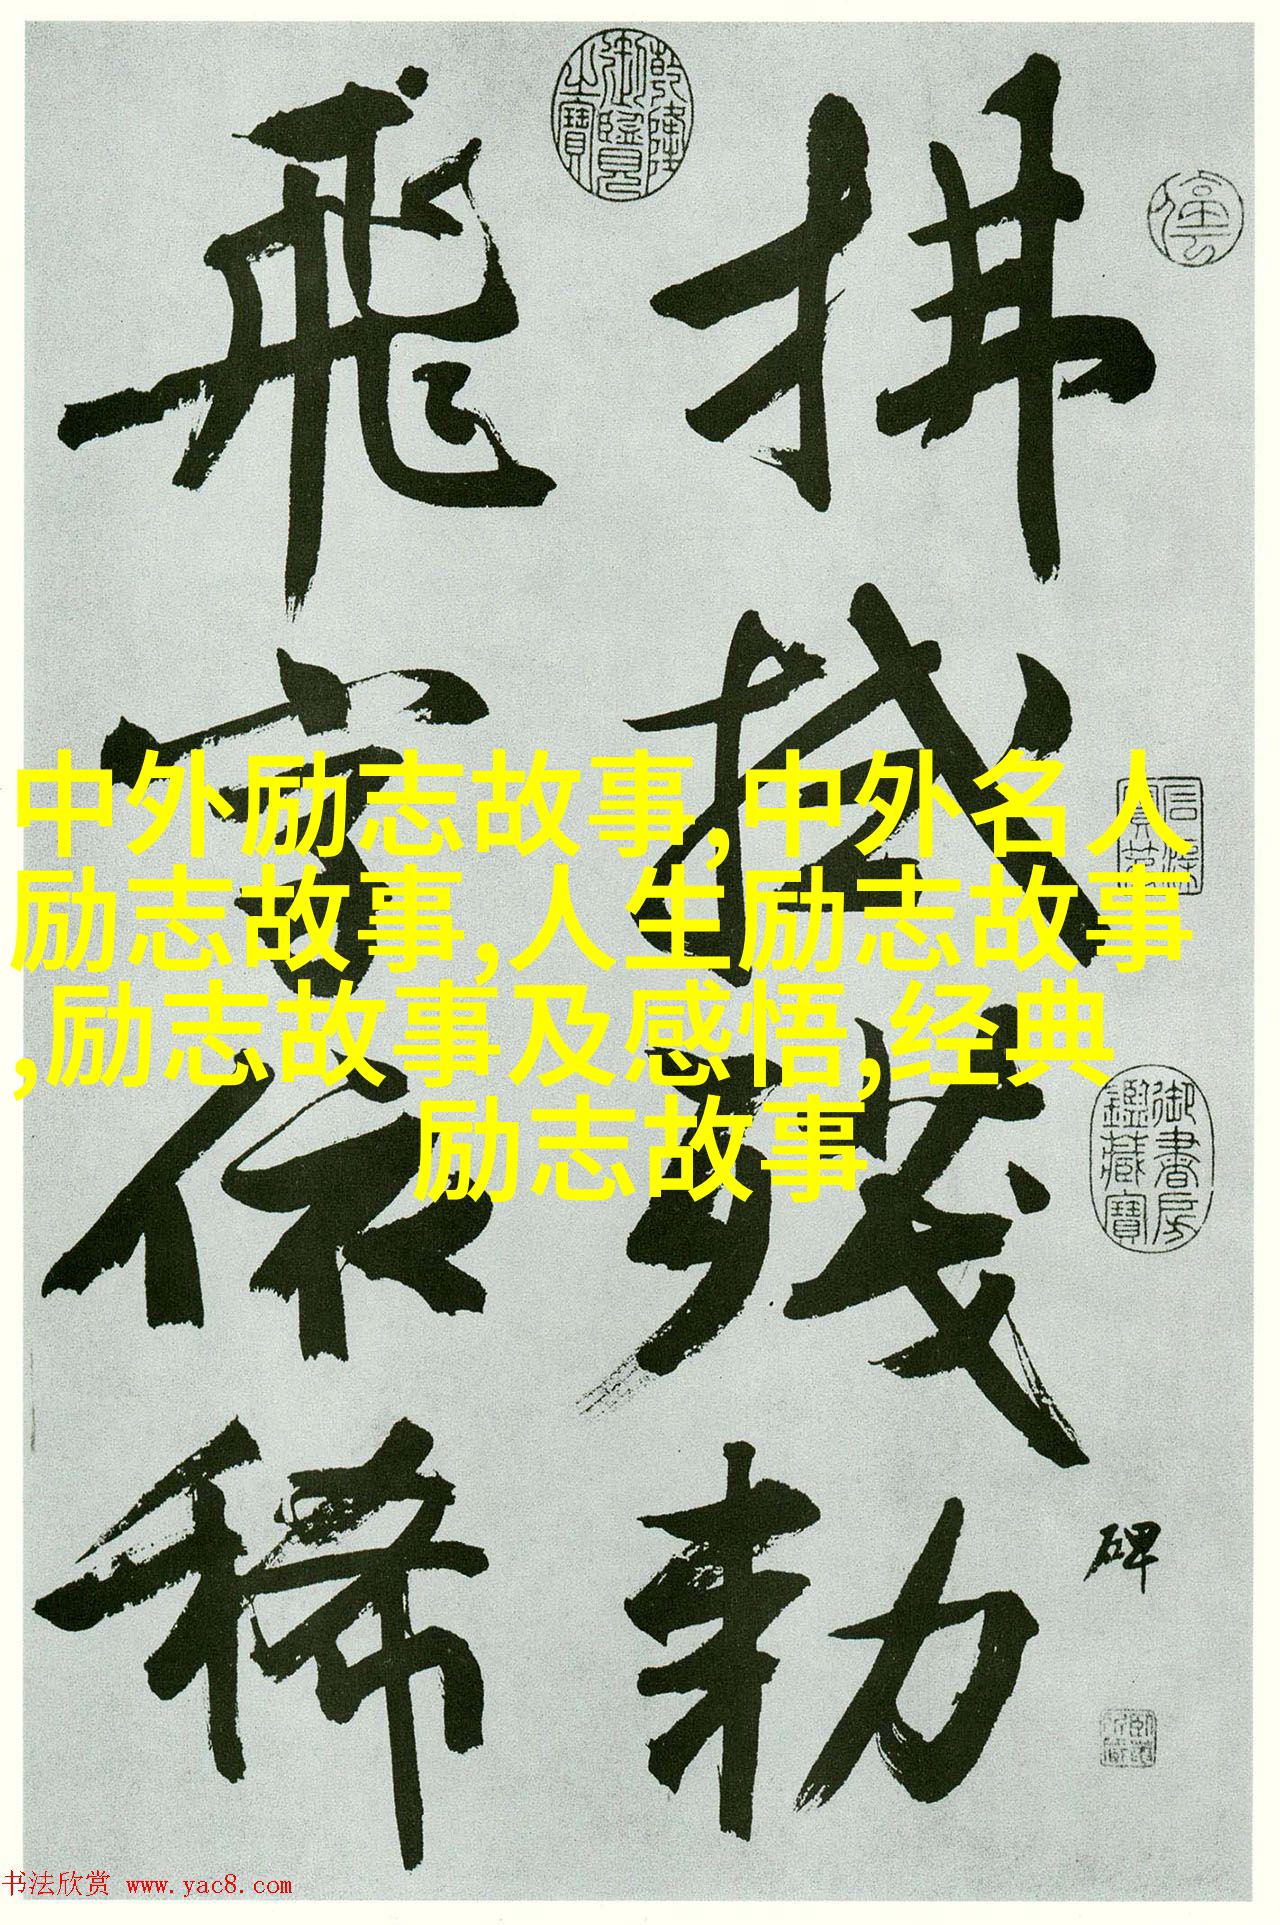 拂拭殘勅
碑
飛字依稀
乾隆御覽之寶
御書房鑑藏寶
中外励志故事,中外名人
励志故事,人生励志故事
,励志故事及感悟,经典
励志故事
书法欣赏 www.yac8.com